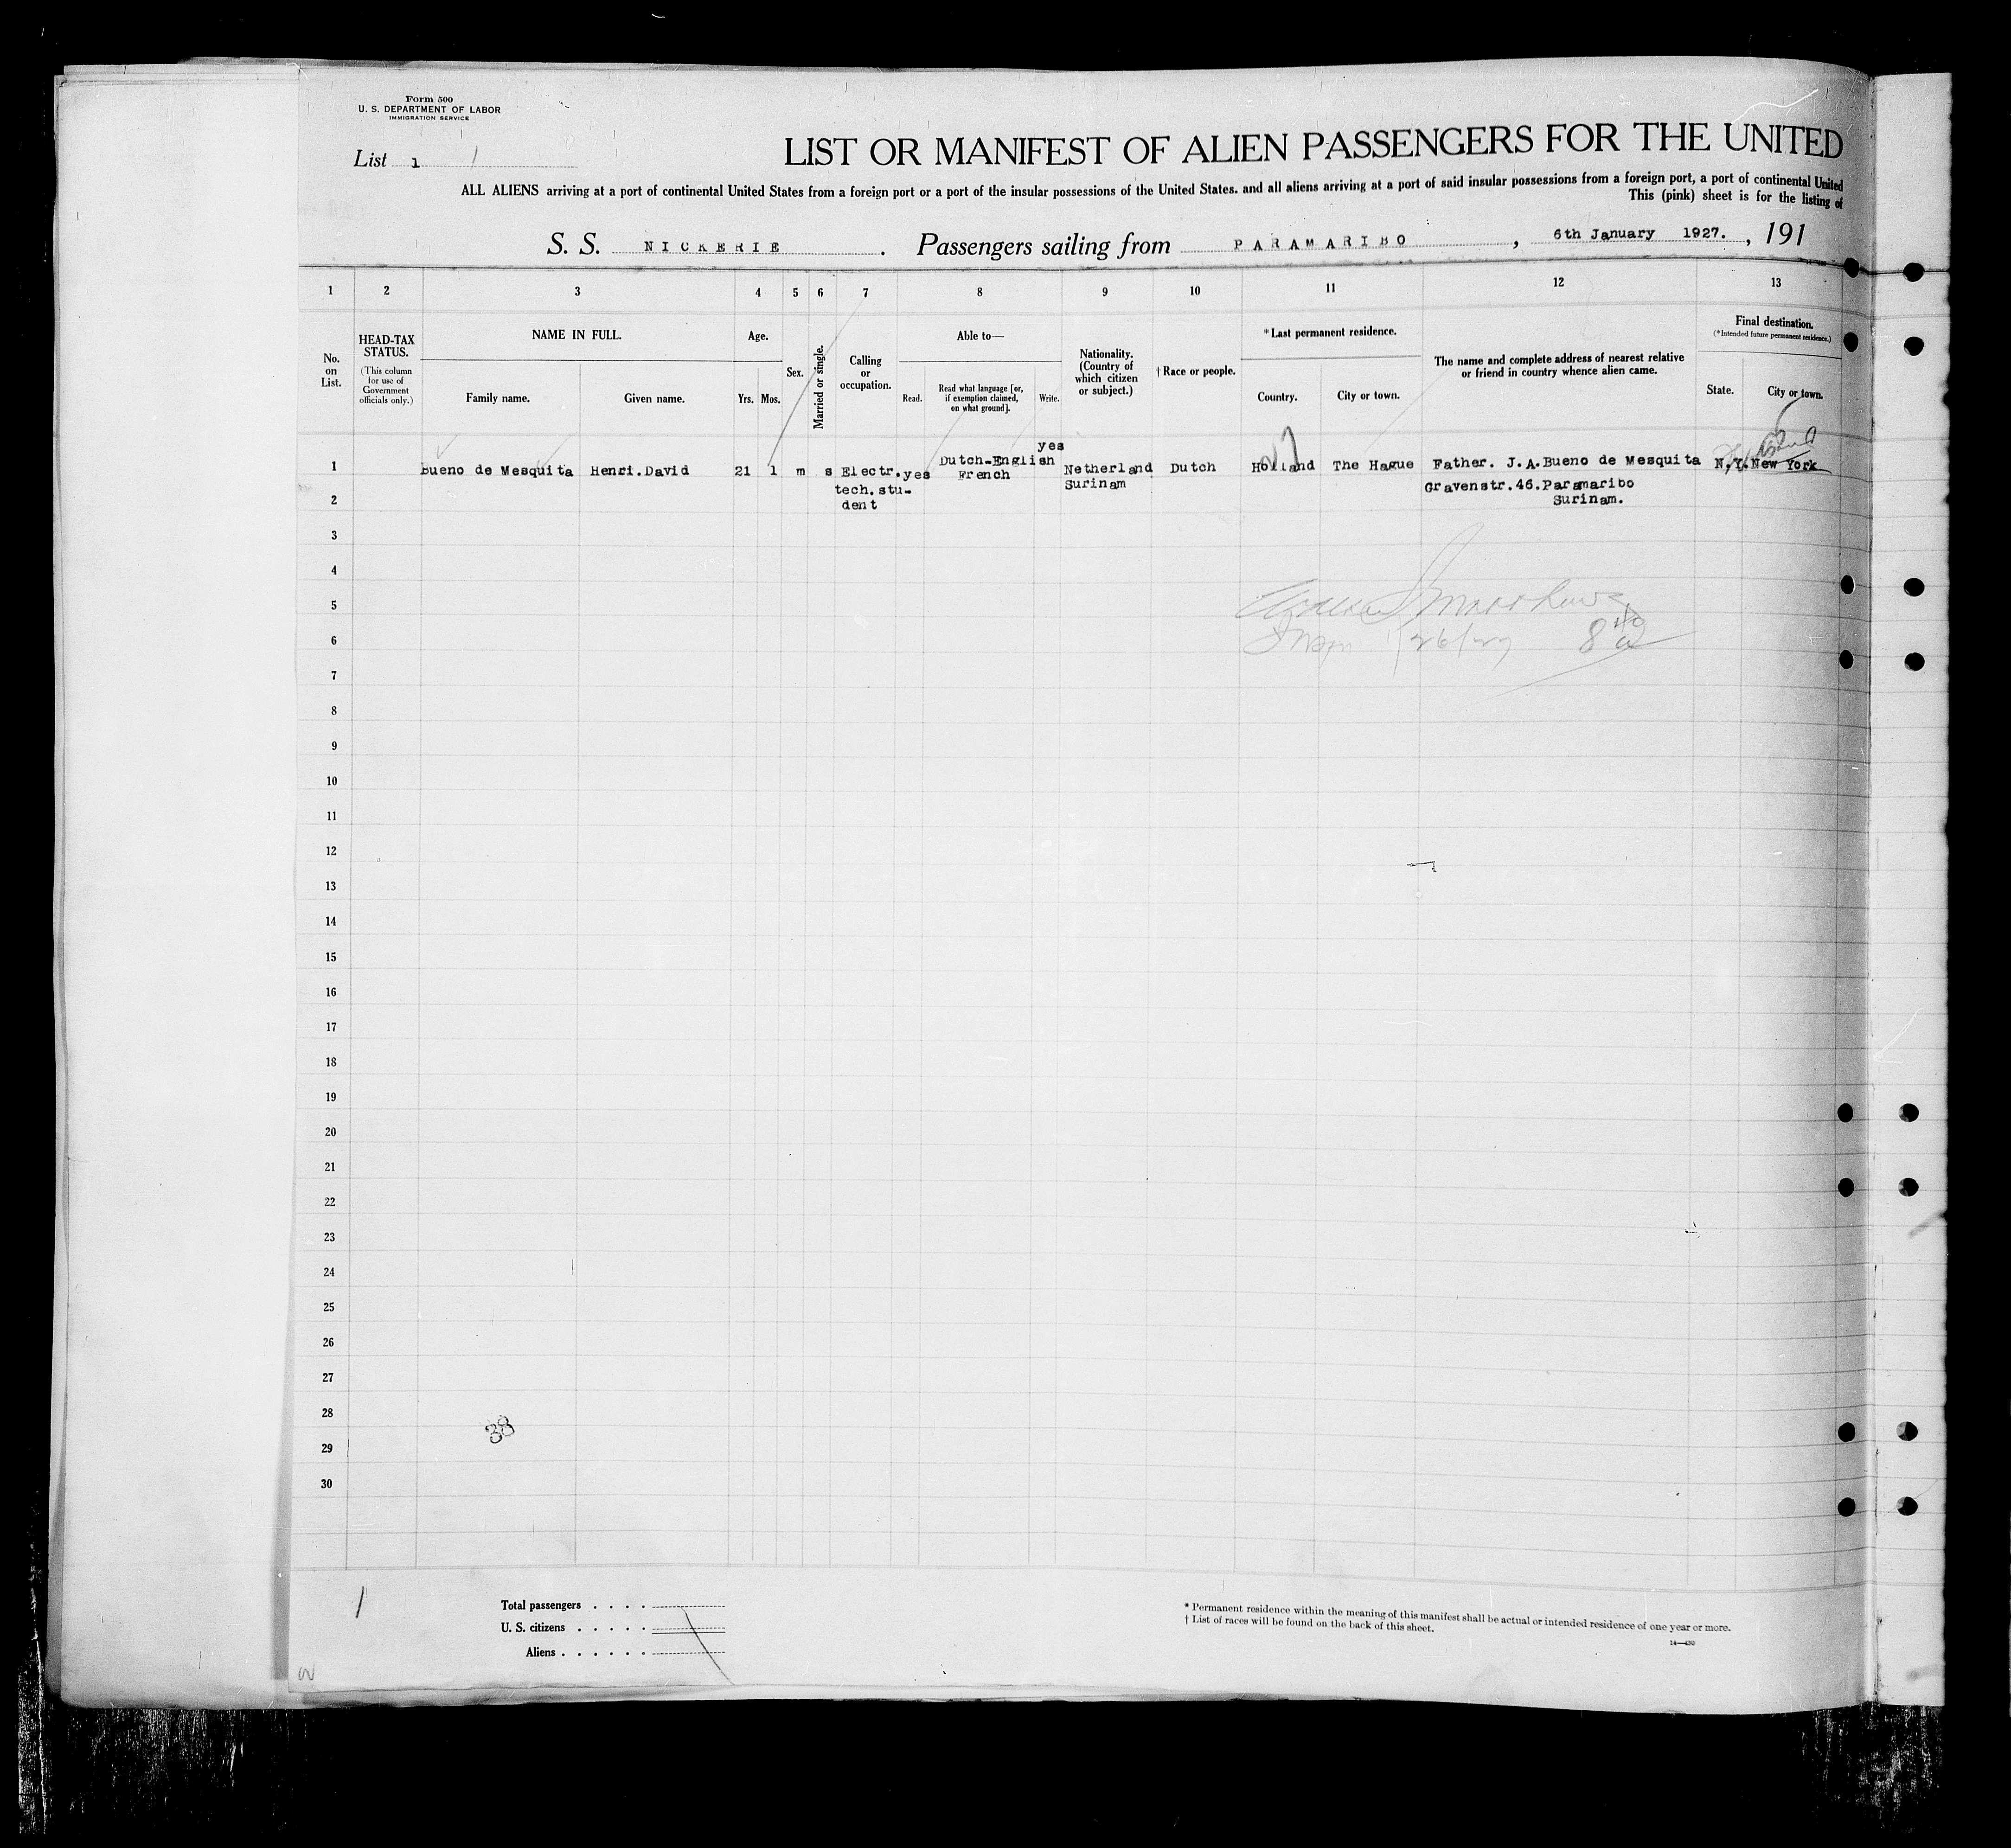 Form 500
U. S. DEPARTMENT OF LABOR
IMMIGRATION SERVICE
List 1
LIST OR MANIFEST OF ALIEN PASSENGERS FOR THE UNITED
ALL ALIENS arriving at a port of continental United States from a foreign port or a port of the insular possessions of the United States. and all aliens arriving at a port of said insular possessions from a foreign port, a port of continental United
This (pink) sheet is for the listing of
S. S. NICKERIE. Passengers sailing from PARAMARIBO, 6th January 1927., 191
1 2 3 4 5 6 7 8 9 10 11 12 13
No. on List.
HEAD-TAX STATUS.
(This column for use of Government officials only.)
NAME IN FULL.
Family name. Given name.
Age.
Yrs. Mos.
Sex.
Married or single.
Calling or occupation.
Able to—
Read. Read what language [or, if exemption claimed, on what ground]. Write.
Nationality. (Country of which citizen or subject.)
† Race or people.
*Last permanent residence.
Country. City or town.
The name and complete address of nearest relative or friend in country whence alien came.
Final destination.
(*Intended future permanent residence.)
State. City or town.
yes
1 Bueno de Mesquita Henri.David 21 1 m s Electr. yes Dutch-English Netherland Dutch Holland The Hague Father. J.A.Bueno de Mesquita N.Y. New York
French
tech.stu- Surinam Gravenstr.46.Paramaribo
2 dent Surinam.
3
4
5
6 1/26/27 8
7
8
9
10
11
12
13
14
15
16
17
18
19
20
21
22
23
24
25
26
27
28
38
29
30
1
Total passengers . . . .
U. S. citizens . . . . .
Aliens . . . . . .
* Permanent residence within the meaning of this manifest shall be actual or intended residence of one year or more.
† List of races will be found on the back of this sheet.
14—430